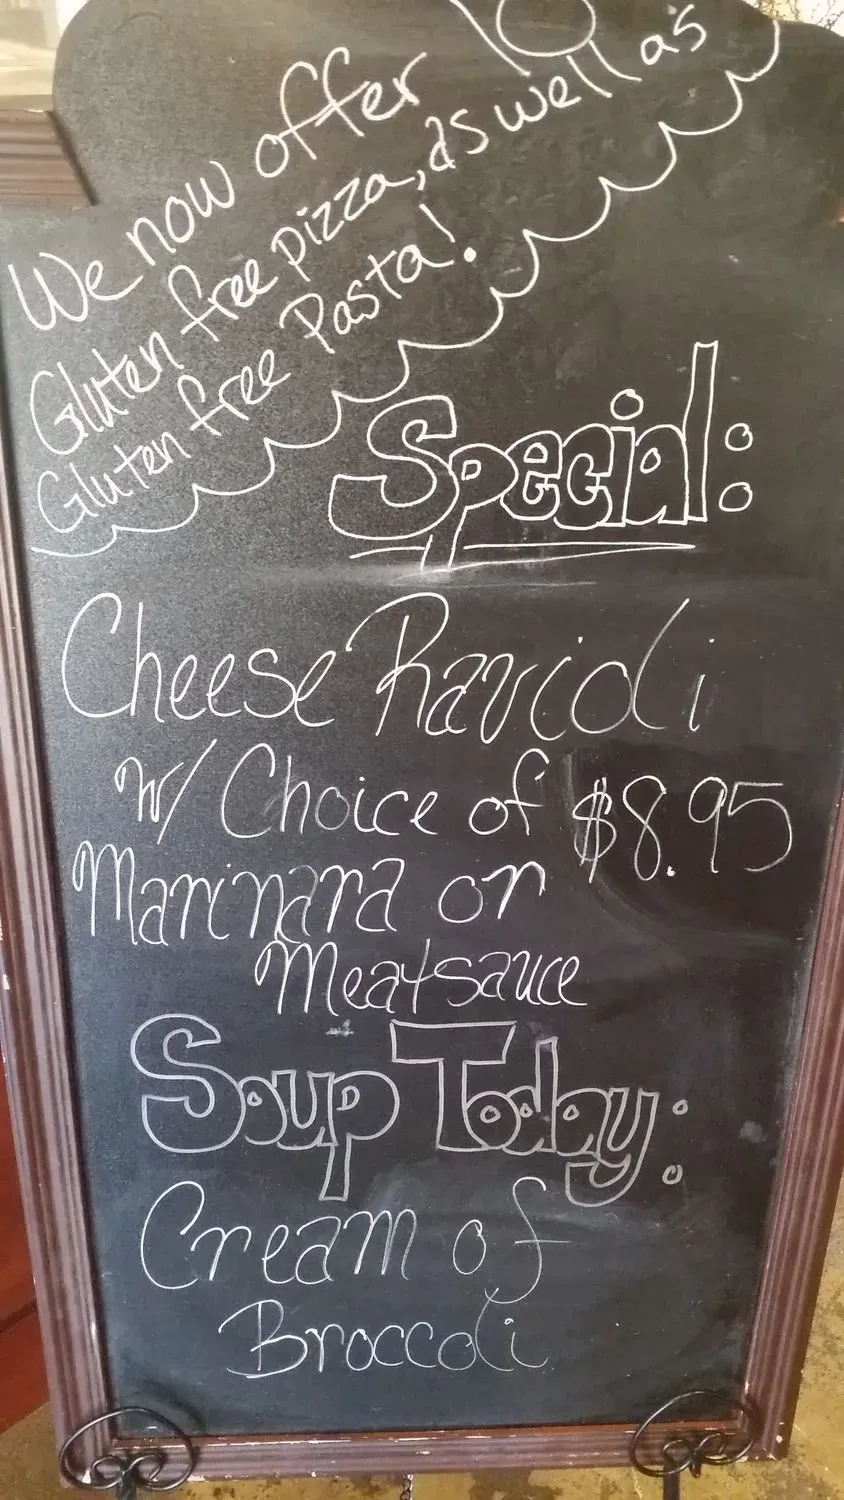 We now offer
Gluten free pizza, as well as
Gluten free Pasta!
Special:
Cheese Ravioli
w/ Choice of $8.95
Marinara or
Meatsauce
Soup Today:
Cream of
Broccoli